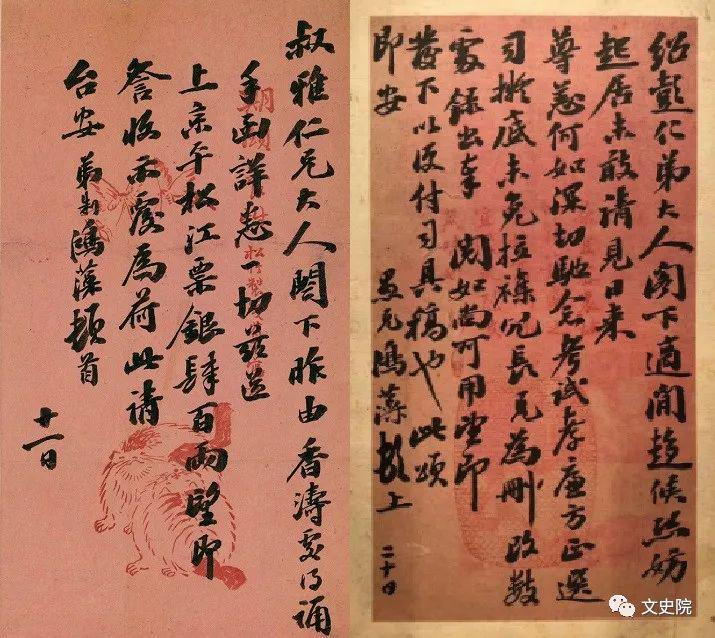 叔雅仁兄大人閣下昨由香濤處得誦
手函詳悉一切茲送
上京平松江票銀肆百兩望即
詧收示覆為荷此請
台安 弟制鴻藻頓首
十一日
紹彭仁弟大人閣下適間趨候恐妨
起居未敢請見日來
尊恙何如深切馳念考試孝廉方正選
司擬底未免拉襍冗長兄為刪改數
處錄出奉 閱如尚可用望即
發下以便付司具稿也此頌
即安 愚兄鴻藻頓上
二十日
文史院